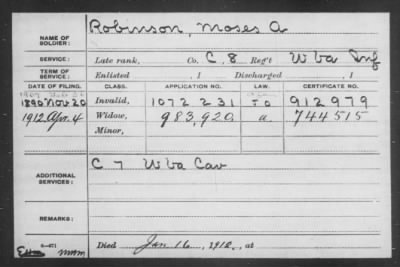 NAME OF SOLDIER: Robinson, Moses A
SERVICE: Late rank, Co. C. 8 Reg't W Va Inf
TERM OF SERVICE: Enlisted , 1 Discharged , 1
DATE OF FILING. CLASS. APPLICATION NO. LAW. CERTIFICATE NO.
1890 Nov 20 Invalid, 1072231 912979
1912 Apr. 4 Widow, 983,920 a. 744515
Minor,
ADDITIONAL SERVICES: C 7 W Va Cav
REMARKS:
Died Jan 16, 1912, at